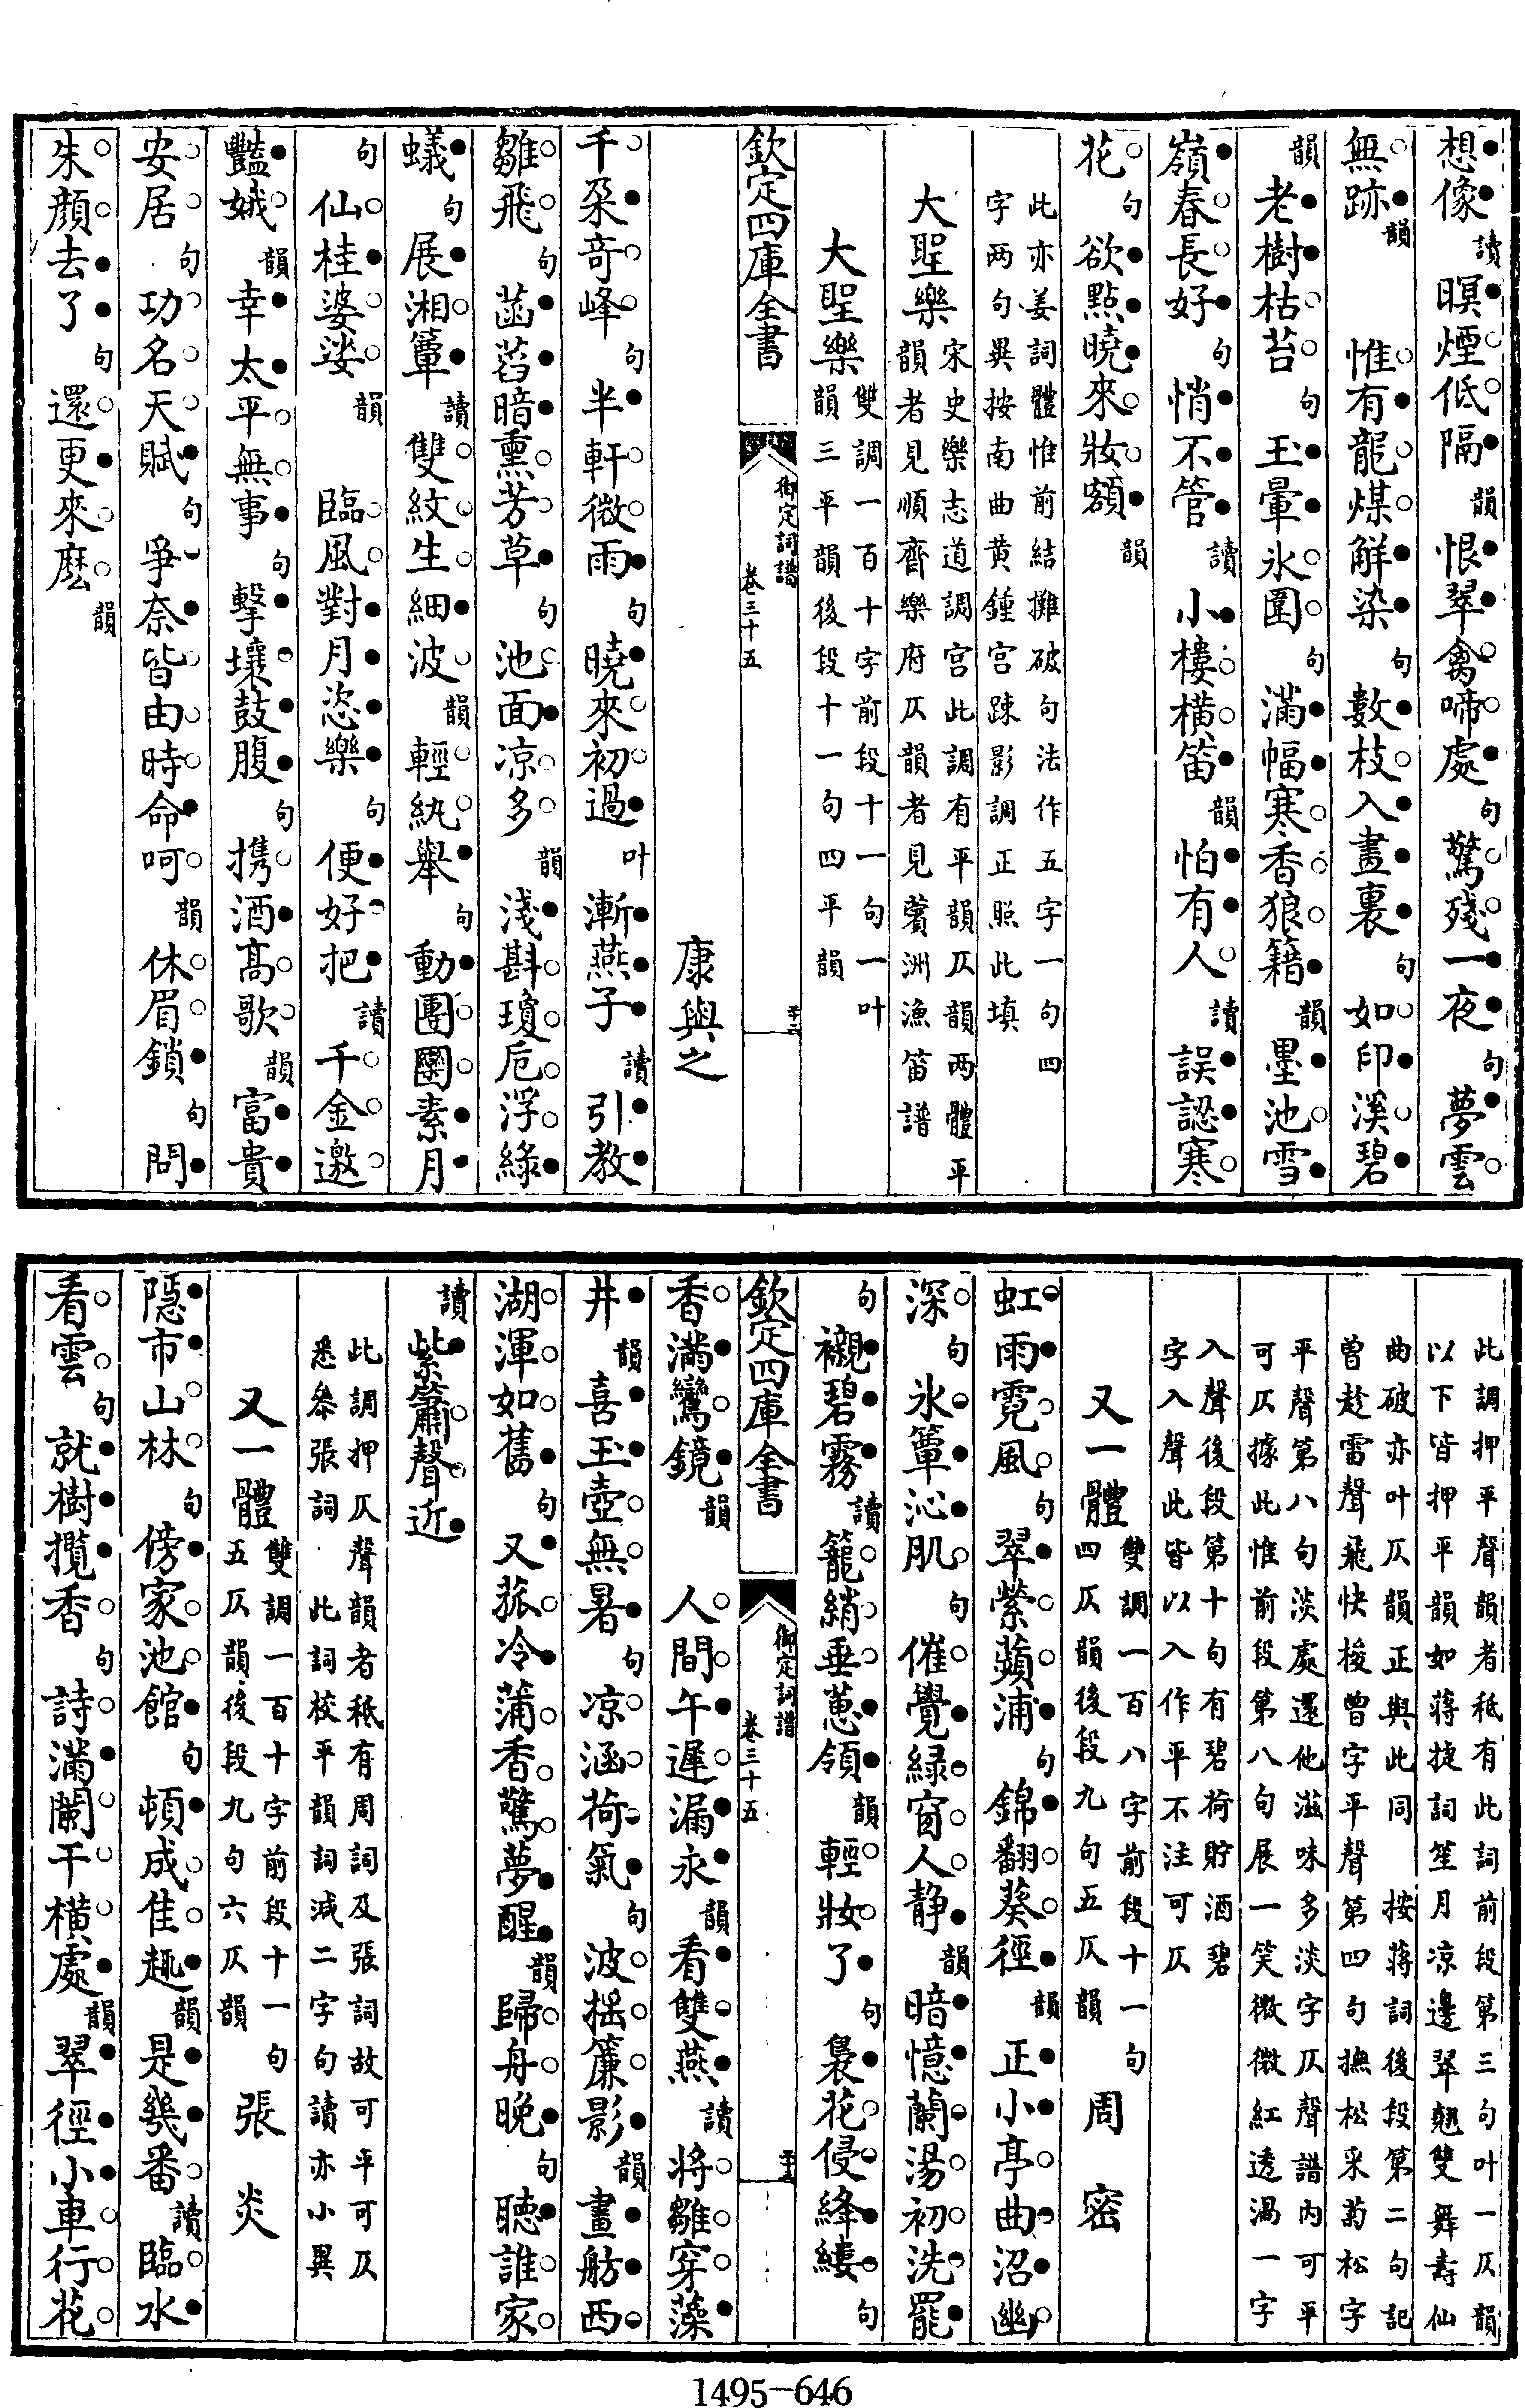 想像讀暝煙低隔韻恨翠禽啼處句驚殘一夜句夢雲
無跡韻　惟有龍煤解染句數枝入畫裏句如印溪碧
韻老樹枯苔句玉暈氷圍句滿幅寒香狼籍韻墨池雪
嶺春長好句悄不管讀小樓橫笛韻怕有人讀誤認寒
花句欲點曉來妝額韻
此亦姜詞體惟前結攤破句法作五字一句四
字兩句異按南曲黄鍾宮踈影調正照此填
大聖樂宋史樂志道調宮此調有平韻仄韻兩體平
韻者見順齊樂府仄韻者見薲洲漁笛譜
大聖樂雙調一百十字前段十一句一叶
韻三平韻後段十一句四平韻
欽定四庫全書　御定詞譜　卷三十五
康與之
千朶奇峰句半軒微雨句曉來初過叶漸燕子讀引教
雛飛句菡萏暗熏芳草句池面凉多韻淺斟瓊巵浮綠
蟻句展湘簟讀雙紋生細波韻輕紈舉句動團圞素月
句仙桂婆娑韻　臨風對月恣樂句便好把讀千金邀
豔娥韻幸太平無事句擊壤鼓腹句携酒高歌韻富貴
安居句功名天賦句爭奈皆由時命呵韻休眉鎖句問
朱顔去了句還更來麽韻
此調押平聲韻者秖有此詞前段第三句叶一仄韻
以下皆押平韻如蔣捷詞笙月凉邊翠翹雙舞壽仙
曲破亦叶仄韻正與此同　按蔣詞後段第二句記
曽趁雷聲飛快梭曽字平聲第四句撫松采菊松字
平聲第八句淡處還他滋味多淡字仄聲譜内可平
可仄據此惟前段第八句展一笑微微紅透渦一字
入聲後段第十句有碧荷貯酒碧
字入聲此皆以入作平不注可仄
又一體雙調一百八字前段十一句
四仄韻後段九句五仄韻　周密
虹雨霓風句翠縈蘋浦句錦翻葵徑韻正小亭曲沼幽
深句氷簟沁肌句催覺緑窗人静韻暗憶蘭湯初洗罷
句襯碧霧讀籠綃垂蕙領韻輕妝了句裊花侵絳縷句
欽定四庫全書　御定詞譜　卷三十五
香滿鸞鏡韻　人間午遲漏永韻看雙燕讀將雛穿藻
井韻喜玉壺無暑句凉涵荷氣句波揺簾影韻畫舫西
湖渾如舊句又菰冷蒲香驚夢醒韻歸舟晚句聽誰家
讀紫簫聲近
此調押仄聲韻者秖有周詞及張詞故可平可仄
悉叅張詞　此詞校平韻詞減二字句讀亦小異
又一體雙調一百十字前段十一句
五仄韻後段九句六仄韻　張炎
隱市山林句傍家池館句頓成佳趣韻是幾番讀臨水
看雲句就樹攬香句詩滿闌干橫處韻翠徑小車行花
1495-646